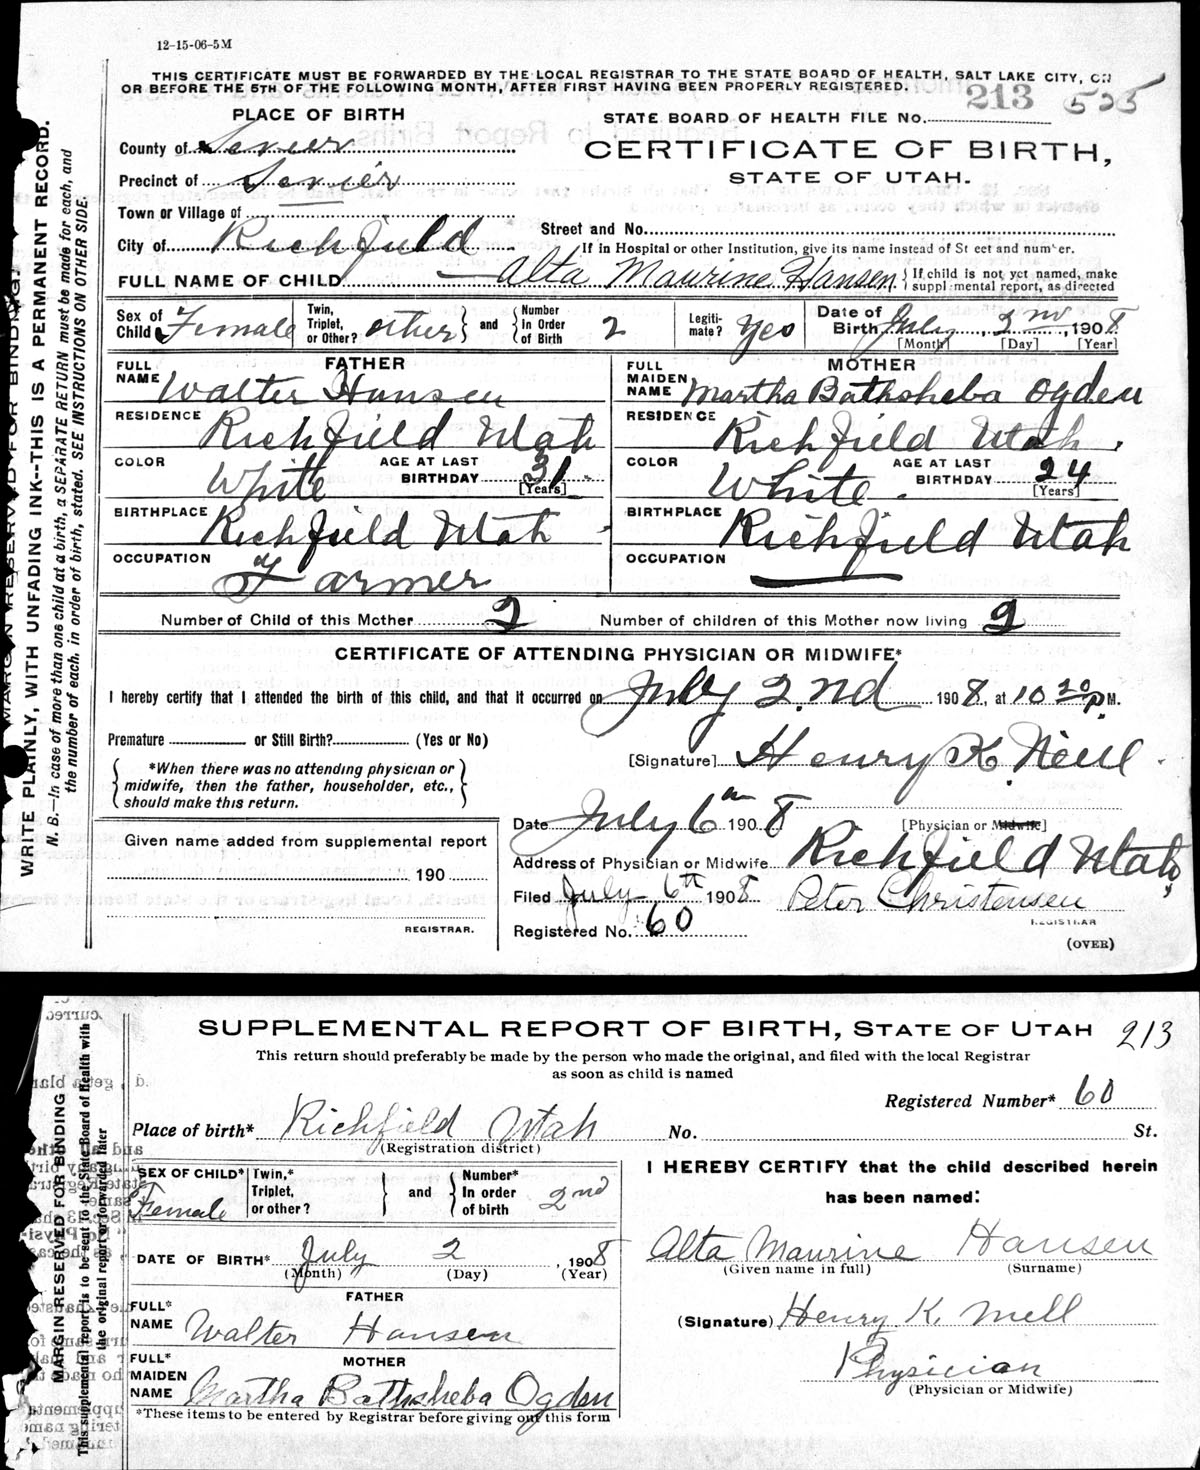 12-15-06-5M
THIS CERTIFICATE MUST BE FORWARDED BY THE LOCAL REGISTRAR TO THE STATE BOARD OF HEALTH, SALT LAKE CITY, ON
OR BEFORE THE 5TH OF THE FOLLOWING MONTH, AFTER FIRST HAVING BEEN PROPERLY REGISTERED.
PLACE OF BIRTH
STATE BOARD OF HEALTH FILE No. 213 525
County of Sevier
CERTIFICATE OF BIRTH,
STATE OF UTAH.
Precinct of Sevier
Town or Village of
Street and No.
City of Richfield
If in Hospital or other Institution, give its name instead of St eet and number.
FULL NAME OF CHILD Alta Maurine Hansen { If child is not yet named, make suppl mental report, as directed
Sex of Child Female Twin, Triplet, or Other? other and Number In Order of Birth 2 Legiti- mate? Yes Date of Birth July, 2nd, 1908
[Month] [Day] [Year]
FATHER
MOTHER
FULL NAME Walter Hansen
FULL MAIDEN NAME Martha Bathsheba Ogden
RESIDENCE Richfield Utah
RESIDENCE Richfield Utah.
COLOR White AGE AT LAST BIRTHDAY 31 [Years]
COLOR White. AGE AT LAST BIRTHDAY 24 [Years]
BIRTHPLACE Richfield Utah
BIRTHPLACE Richfield Utah
OCCUPATION Farmer
OCCUPATION
Number of Child of this Mother 2 Number of children of this Mother now living 2
CERTIFICATE OF ATTENDING PHYSICIAN OR MIDWIFE*
I hereby certify that I attended the birth of this child, and that it occurred on July 2nd 1908, at 10 20 P.M.
Premature or Still Birth? (Yes or No)
[Signature] Henry K. Neill
*When there was no attending physician or
midwife, then the father, householder, etc.,
should make this return.
Date July 6th 1908 [Physician or Midwife]
Given name added from supplemental report
Address of Physician or Midwife Richfield Utah,
190
Filed July 6th 1908 Peter Christensen
REGISTRAR
REGISTRAR.
Registered No. 60
(OVER)
MARGIN RESERVED FOR BINDING
WRITE PLAINLY, WITH UNFADING INK--THIS IS A PERMANENT RECORD.
N. B.—In case of more than one child at a birth, a SEPARATE RETURN must be made for each, and
the number of each, in order of birth, stated. SEE INSTRUCTIONS ON OTHER SIDE.
SUPPLEMENTAL REPORT OF BIRTH, STATE OF UTAH 213
This return should preferably be made by the person who made the original, and filed with the local Registrar
as soon as child is named
Registered Number* 60
Place of birth* Richfield Utah No. St.
(Registration district)
SEX OF CHILD* Female Twin,* Triplet, or other? and Number* In order of birth 2nd
I HEREBY CERTIFY that the child described herein
has been named:
DATE OF BIRTH* July 2, 1908
(Month) (Day) (Year)
Alta Maurine Hansen
(Given name in full) (Surname)
FATHER
FULL* NAME Walter Hansen
(Signature) Henry K. Neill
MOTHER
FULL* MAIDEN NAME Martha Bathsheba Ogden
Physician
(Physician or Midwife)
*These items to be entered by Registrar before giving out this form
MARGIN RESERVED FOR BINDING
This supplemental report is to be sent to the State Board of Health with
the original report or forwarded later